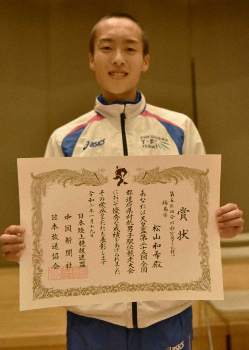 賞状
福島県
松山和希
あなたは天皇盃第二十五回全国
都道府県対抗男子駅伝競走大会
において優秀な成績をあげられました
その栄誉をたたえ表彰します
令和二年一月十九日
日本陸上競技連盟
中国新聞社
日本放送協会
asics